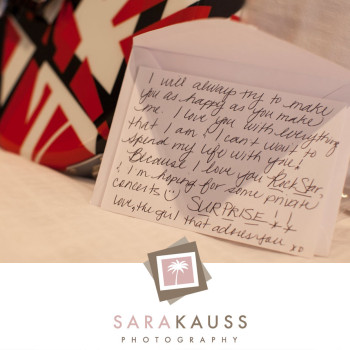 I will always try to make
you as happy as you make
me. I love you with everything
that I am! I can't wait to
spend my life with you!
Because I love you RockStar,
& I'm hoping for some private
concerts ☺
SURPRISE!!
Love, the girl that adores you xo
SARAKAUSS
PHOTOGRAPHY